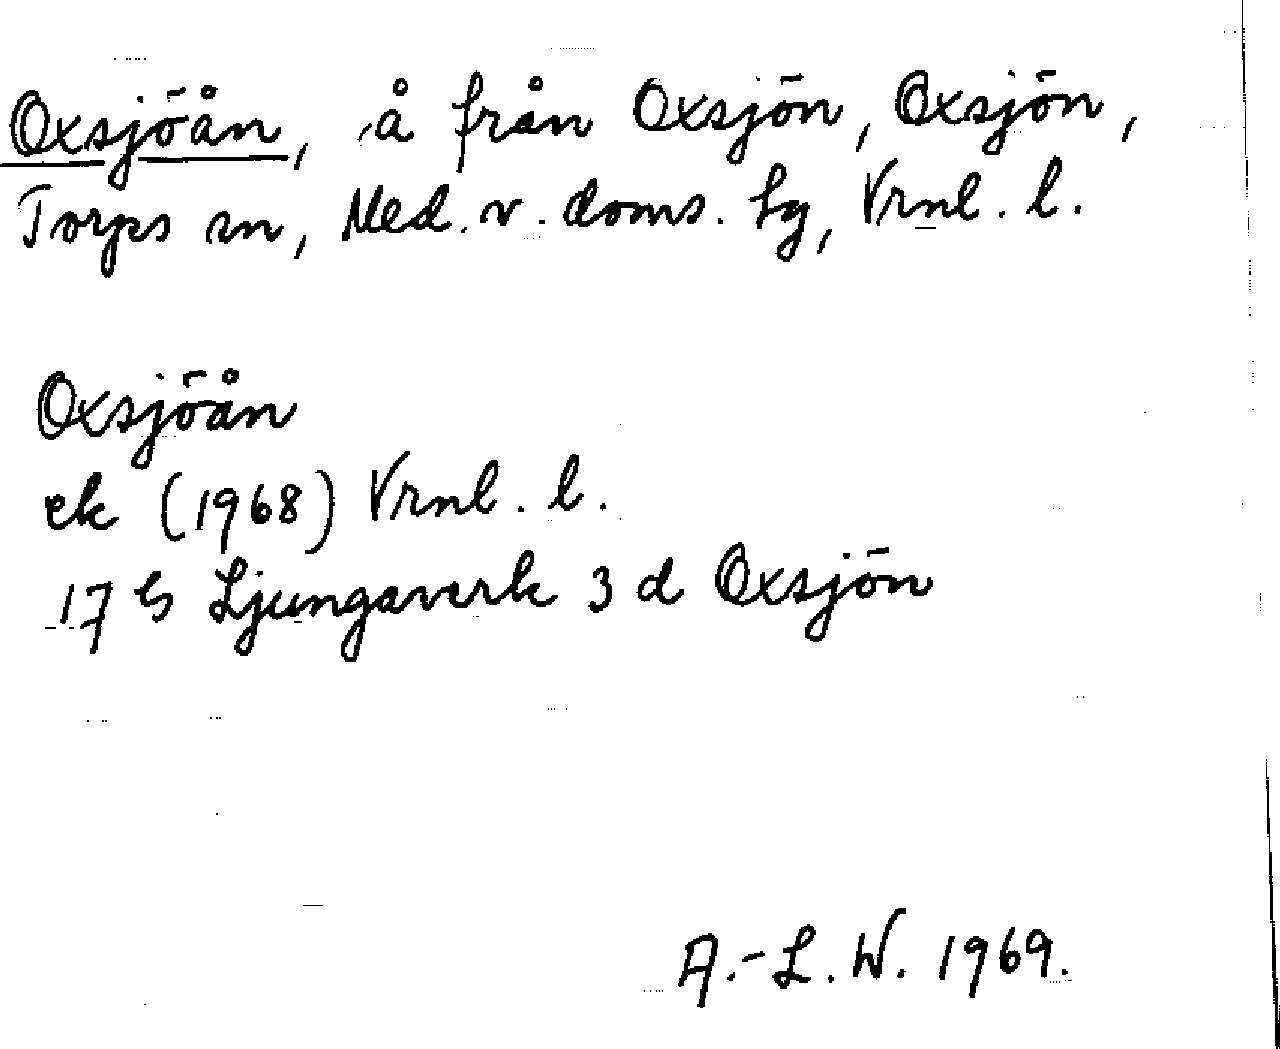 Oxsjöån, å från Oxsjön, Oxsjön,
Torps sn, Med. v. doms. hg, Vrnl. l.
Oxsjöån
ek (1968) Vrnl. l.
17 G Ljungaverk 3 d Oxsjön
A.-L. W. 1969.